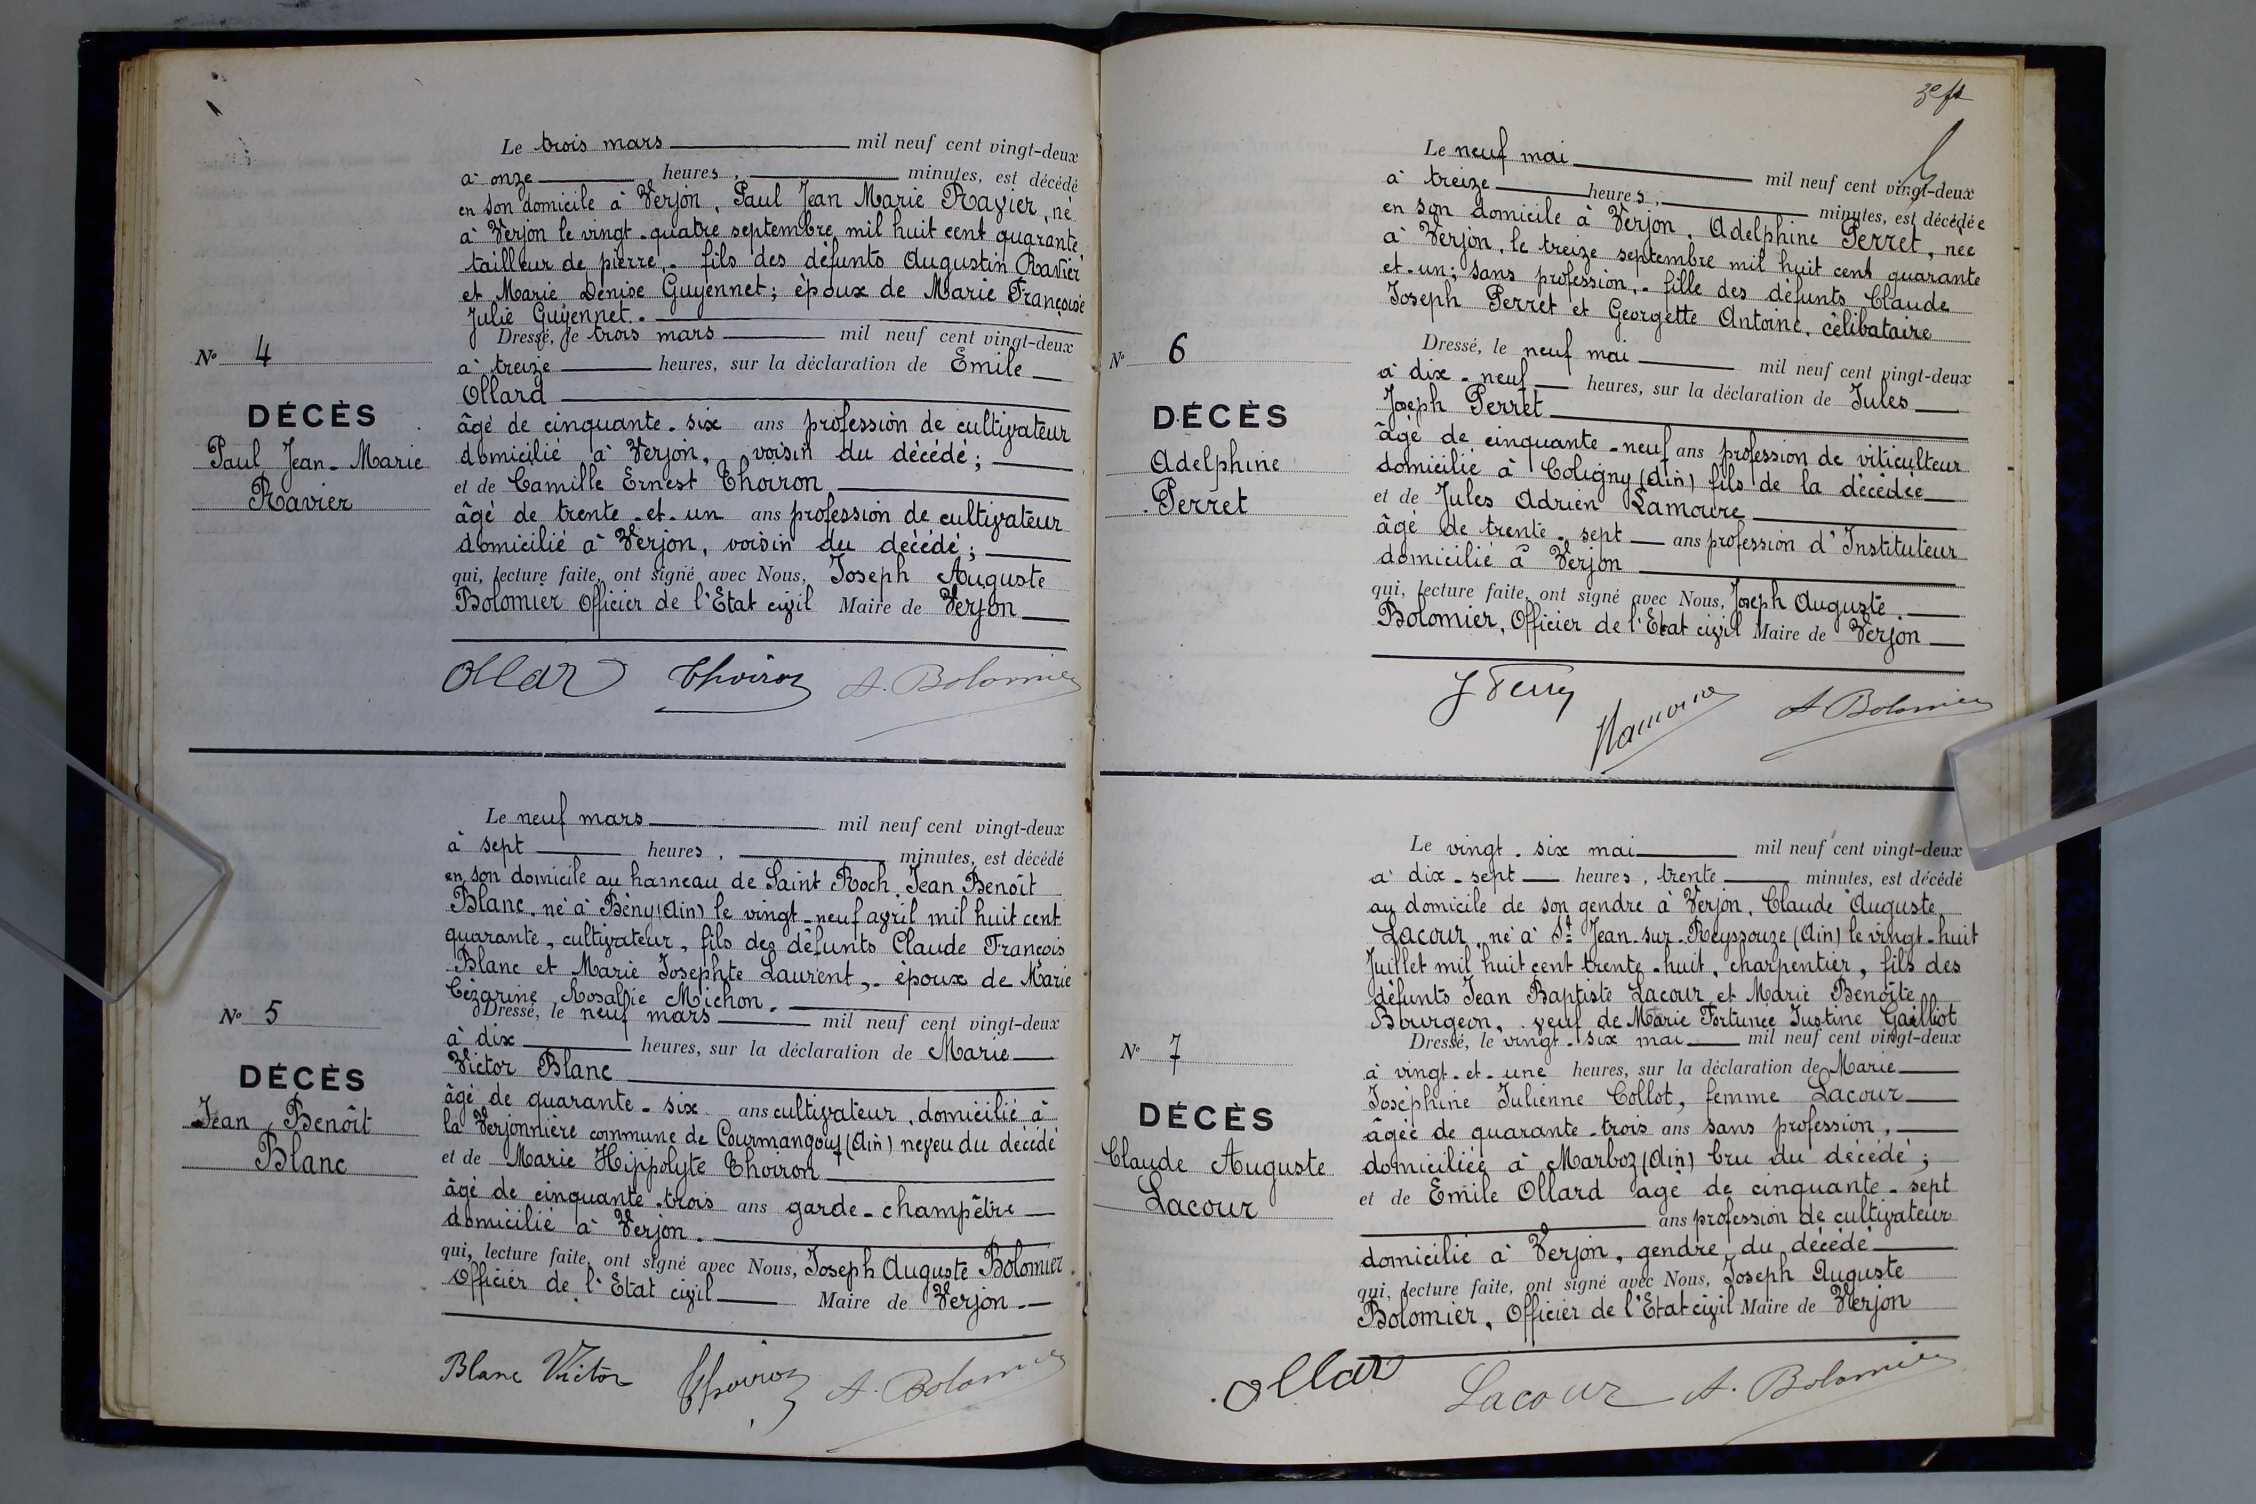 Le trois mars mil neuf cent vingt-deux
à onze heures, minutes, est décédé
en son domicile à Verjon, Paul Jean Marie Ravier, né
à Verjon le vingt-quatre septembre mil huit cent quarante
tailleur de pierre, - fils des défunts Augustin Ravier
et Marie Denise Guyennet; époux de Marie Françoise
Julie Guyennet.
Dressé, le trois mars mil neuf cent vingt-deux
à treize heures, sur la déclaration de Emile
Ollard
âgé de cinquante-six ans profession de cultivateur
domicilié à Verjon, voisin du décédé;
et de Camille Ernest Thoiron
âgé de trente-et-un ans profession de cultivateur
domicilié à Verjon, voisin du décédé;
qui, lecture faite, ont signé avec Nous, Joseph Auguste
Bolomier Officier de l'Etat civil Maire de Verjon
Nº 4
DÉCÈS
Paul Jean-Marie
Ravier
Ollar Thoiron A. Bolomier
Le neuf mars mil neuf cent vingt-deux
à sept heures, minutes, est décédé
en son domicile au hameau de Saint Roch Jean Benoît
Blanc, né à Bény (Ain) le vingt-neuf avril mil huit cent
quarante, cultivateur, fils des défunts Claude François
Blanc et Marie Josephte Laurent, - époux de Marie
Cézarine Rosalie Michon.
Dressé, le neuf mars mil neuf cent vingt-deux
à dix heures, sur la déclaration de Marie
Victor Blanc
âgé de quarante-six ans cultivateur, domicilié à
la Verjonnière commune de Courmangoux (Ain) neveu du décédé
et de Marie Hippolyte Thoiron
âgé de cinquante-trois ans garde-champêtre
domicilié à Verjon.
qui, lecture faite, ont signé avec Nous, Joseph Auguste Bolomier
Officier de l'Etat civil Maire de Verjon
Nº 5
DÉCÈS
Jean Benoît
Blanc
Blanc Victor Thoiron A. Bolomier
3e ft
Le neuf mai mil neuf cent vingt-deux
à treize heures, minutes, est décédée
en son domicile à Verjon, Adelphine Perret, née
à Verjon, le treize septembre mil huit cent quarante
et-un; sans profession, - fille des défunts Claude
Joseph Perret et Georgette Antoine, célibataire
Dressé, le neuf mai mil neuf cent vingt-deux
à dix-neuf heures, sur la déclaration de Jules
Joseph Perret
âgé de cinquante-neuf ans profession de viticulteur
domicilié à Coligny (Ain) fils de la décédée
et de Jules Adrien Lamoure
âgé de trente-sept ans profession d'Instituteur
domicilié à Verjon
qui, lecture faite, ont signé avec Nous, Joseph Auguste
Bolomier, Officier de l'Etat civil Maire de Verjon
Nº 6
DÉCÈS
Adelphine
Perret
J Perret Lamoure A Bolomier
Le vingt-six mai mil neuf cent vingt-deux
à dix-sept heures, trente minutes, est décédé
au domicile de son gendre à Verjon, Claude Auguste
Lacour, né à St Jean-sur-Reyssouze (Ain) le vingt-huit
Juillet mil huit cent trente-huit, charpentier, fils des
défunts Jean Baptiste Lacour et Marie Benoîte
Bourgeon, veuf de Marie Fortunée Justine Gailliot
Dressé, le vingt-six mai mil neuf cent vingt-deux
à vingt-et-une heures, sur la déclaration de Marie
Joséphine Julienne Collot, femme Lacour
âgée de quarante-trois ans sans profession,
domiciliée à Marboz (Ain) bru du décédé;
et de Emile Ollard âgé de cinquante-sept
ans profession de cultivateur
domicilié à Verjon, gendre du décédé
qui, lecture faite, ont signé avec Nous, Joseph Auguste
Bolomier, Officier de l'Etat civil Maire de Verjon
Nº 7
DÉCÈS
Claude Auguste
Lacour
Ollar Lacour A. Bolomier